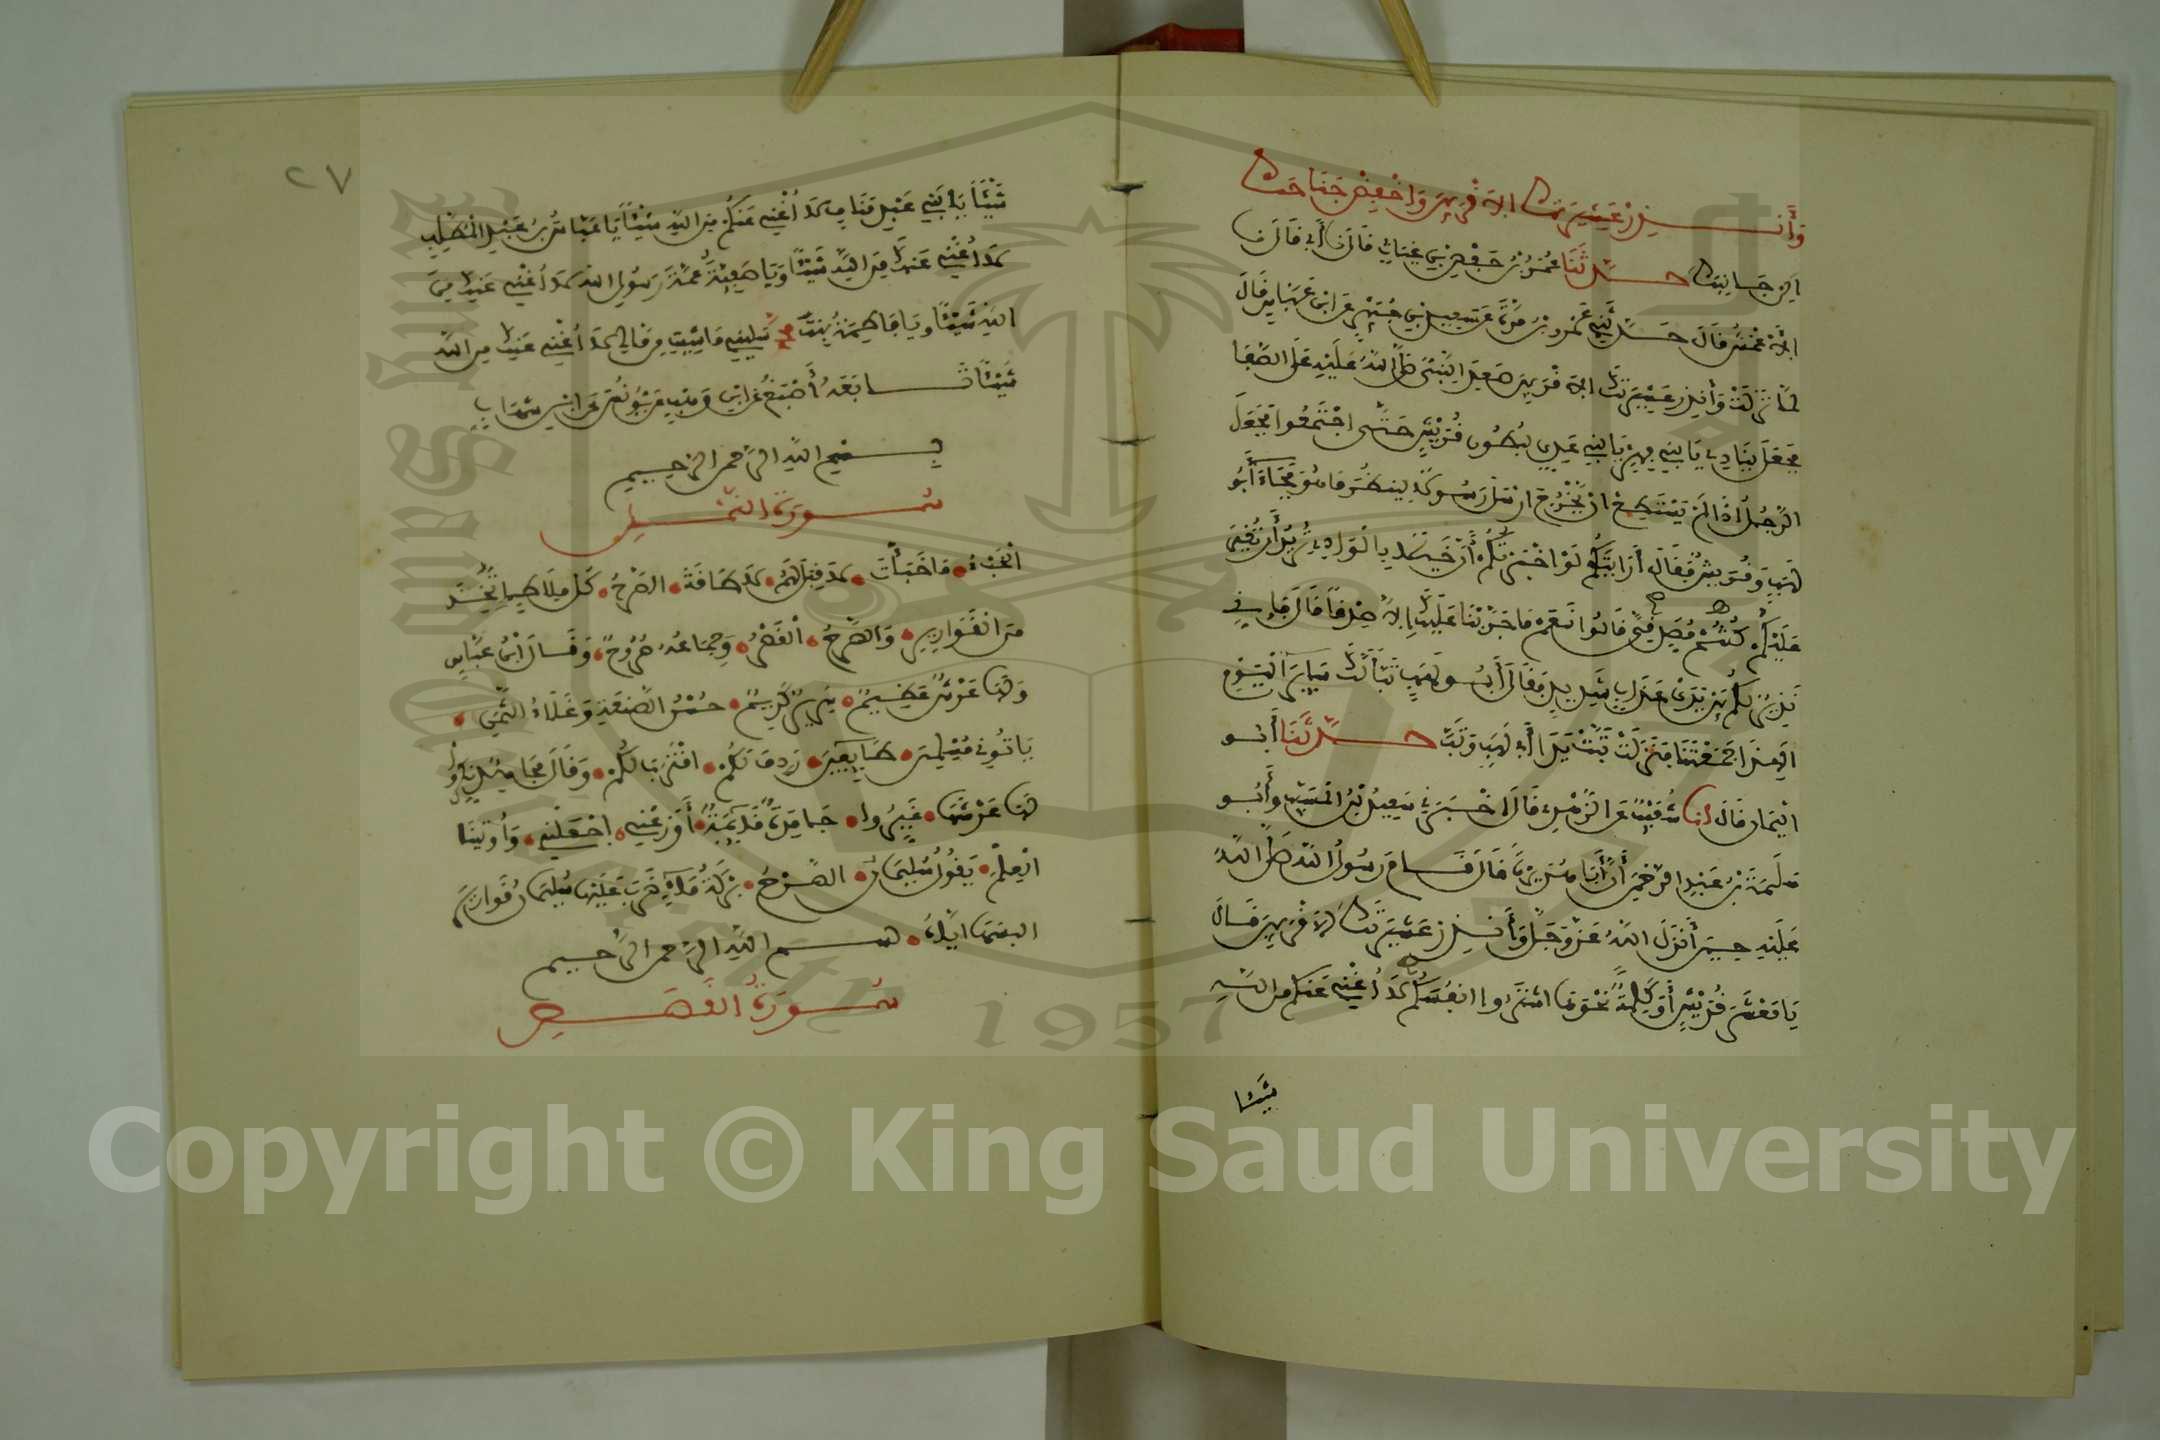 وَأَنــذِرْ عَشِيرَتَكَ الاَقْرَبِينَ وَاخْفِضْ جَنَاحَكَ
أَلِنْ جَانِبَكَ حــدَّثَنَا عُمَرُ بْنُ حَفْصِ بْنِ غِيَاثٍ قَالَ نا أَبِي قَالَ نا
الاَعْمَشُ قَالَ حَــدَّثَنِي عَمْرُو بْنُ مُرَّةَ عَن سَعِيدِ بْنِ جُبَيْرٍ عَنِ ابْنِ عَبَّاسٍ قَالَ
لَمَّا نَزَلَتْ وَأَنذِرْ عَشِيرَتَكَ الاَقْرَبِينَ صَعِدَ النَّبِيُّ صَلَّى اللَّهُ عَلَيْهِ عَلَى الصَّفَا
فَجَعَلَ يُنَادِي يَا بَنِي فِهْرٍ يَا بَنِي عَدِيٍّ لِبُطُونِ قُرَيْشٍ حَتَّى اجْتَمَعُوا فَجَعَلَ
الرَّجُلُ اذَا لَمْ يَسْتَطِعْ انْ يَخْرُجَ ارْسَلَ رَسُولاً لِيَنظُرَ مَا هُوَ فَجَاءَ أَبُو
لَهَبٍ وَقُرَيْشٌ فَقَالَ أَرَايْتَكُمْ لَوْ اخْبَرْتُكُمْ أَنَّ خَيْلاً بِالْوَادِي تُرِيدُ أَن تُغِيرَ
عَلَيْكُمْ كُنتُمْ مُصَدِّقِيَّ قَالُوا نَعَمْ مَا جَرَّبْنَا عَلَيْكَ إِلاَّ صِدْقًا قَالَ فَإِنِّي
نَذِيرٌ لَكُمْ بَيْنَ يَدَيْ عَذَابٍ شَدِيدٍ فَقَالَ أَبُــو لَهَبٍ تَبًّا لَكَ سَايِرَ الْيَوْمِ
أَلِهَذَا جَمَعْتَنَا فَنَزَلَتْ تَبَّتْ يَدَا أَبِي لَهَبٍ وَتَبَّ حــدَّثَنَا أَبُــو
الْيَمَانِ قَالَ أنا شُعَيْبٌ عَنِ الزُّهْرِيِّ قَالَ اخْبَرَنِي سَعِيدُ بْنُ الْمُسَيَّبِ وَأَبُــو
سَلَمَةَ بْنُ عَبْدِ الرَّحْمَنِ أَنَّ أَبَا هُرَيْرَةَ قَالَ قَــامَ رَسُولُ اللَّهِ صَلَّى اللَّهُ
عَلَيْهِ حِينَ أَنْزَلَ اللَّهُ عَزَّ وَجَلَّ وَأَنــذِرْ عَشِيرَتَكَ الاَقْرَبِينَ قَــالَ
يَا مَعْشَرَ قُرَيْشٍ أَوْ كَلِمَةً نَحْوَهَا اشْتَرُوا انفُسَكُمْ لاَ أُغْنِي عَنكُم مِنَ اللَّهِ
شَيْئًا
٢٧
شَيْئًا يَا بَنِي عَبْدِ مَنَافٍ لاَ أُغْنِي عَنكُمْ مِنَ اللَّهِ شَيْئًا يَا عَبَّاسُ بْنُ عَبْدِ الْمُطَّلِبِ
لاَ أُغْنِي عَنكَ مِنَ اللَّهِ شَيْئًا وَيَا صَفِيَّةُ عَمَّةَ رَسُولِ اللَّهِ لاَ أُغْنِي عَنكِ مِنَ
اللَّهِ شَيْئًا وَيَا فَاطِمَةُ بِنْتَ سَلِينِي مَا شِيتِ مِن مَالِي لاَ أُغْنِي عَنكِ مِنَ اللَّهِ
شَيْئًا تَــابَعَهُ أَصْبَغُ عَنِ ابْنِ وَهْبٍ عَن يُونُسَ عَنِ ابْنِ شِهَابٍ
بِــسْمِ اللَّهِ الرَّحْمَنِ الرَّحِيمِ
سُــورَةُ النَّمْــلِ
الْخَبْءُ مَا خَبَأْتَ لاَ قِبَلَ لَهُمْ لاَ طَاقَةَ الصَّرْحُ كُلُّ مِلاَطٍ اتُّخِذَ
مِنَ الْقَوَارِيرِ وَالصَّرْحُ الْقَصْرُ وَجِمَاعُهُ صُرُوحٌ وَقَــالَ ابْنُ عَبَّاسٍ
وَلَهَا عَرْشٌ عَظِيمٌ سَرِيرٌ كَرِيمٌ حُسْنُ الصَّنْعَةِ وَغَلاَءُ الثَّمَنِ
يَاتُونِي مُسْلِمِينَ طَايِعِينَ رَدِفَ لَكُم اقْتَرَبَ لَكُمْ وَقَالَ مُجَاهِدٌ نَكِّرُوا
لَهَا عَرْشَهَا غَيِّرُوا جَامِدَةً قَايِمَةً أَوْزِعْنِي اجْعَلْنِي وَأُوتِينَا
الْعِلْمَ يَقُولُ سُلَيْمَانُ الصَّرْحُ بِرْكَةُ مَاءٍ ضَرَبَ عَلَيْهَا سُلَيْمَانُ قَوَارِيرَ
أَلْبَسَهَا ايَّاهُ بســم اللَّهِ الرَّحْمَنِ الرَّحِيمِ
سُــورَةُ الْقَصَــصِ
King Saud University
1957
Copyright © King Saud University